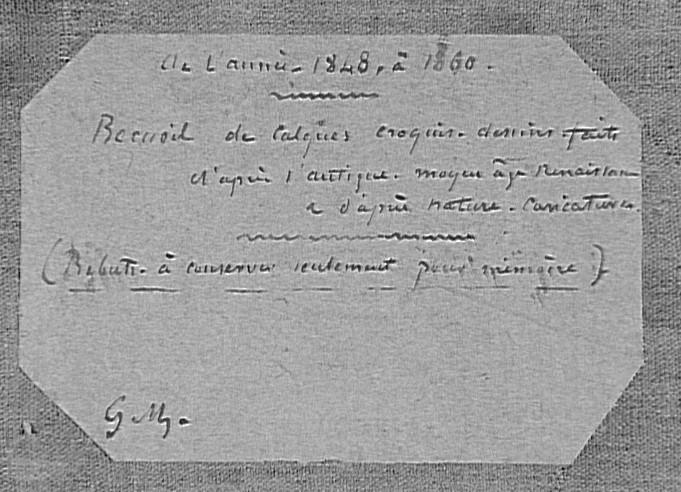 de l'année - 1848, à 1860.
Recueil de calques croquis - dessins faits
d'après l'antique - moyen âge Renaissance
& d'après nature - caricatures.
(Rebuts - à conserver seulement pour mémoire)
G. M.